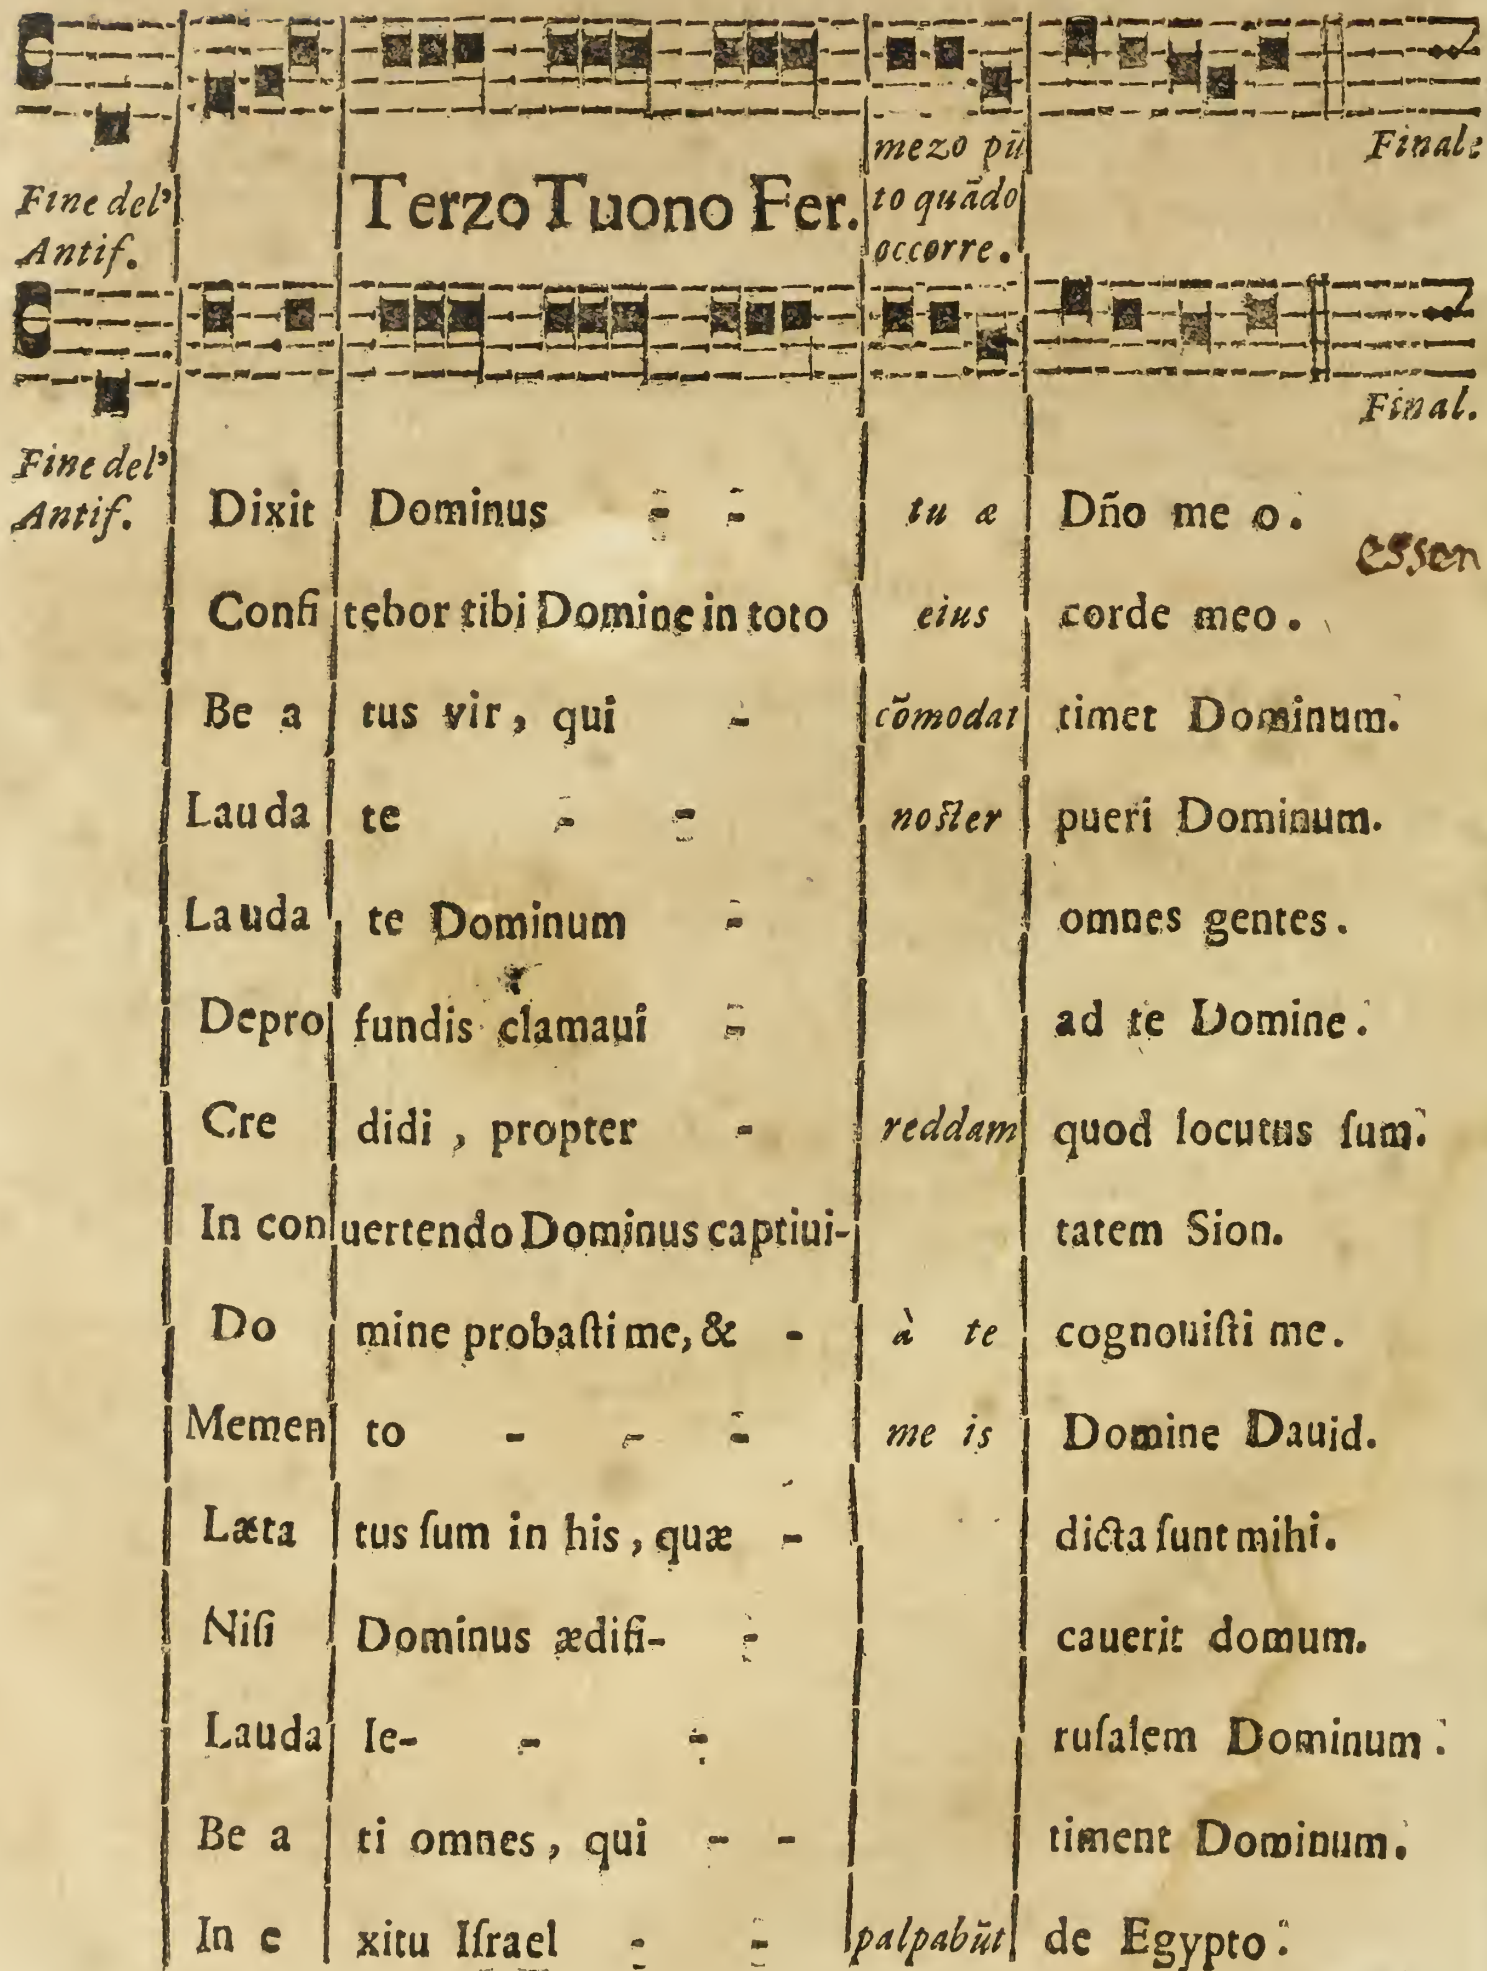 mezo pū Finale
Fine del' Terzo Tuono Fer. to quādo
Antif. occorre.
Final.
Fine del'
Antif. Dixit Dominus - - tu æ Dño me o.
essen
Confi tebor tibi Domine in toto eius corde meo.
Be a tus vir, qui - cōmodat timet Dominum.
Lauda te - - noſter pueri Dominum.
Lauda te Dominum - omnes gentes.
Depro fundis clamaui - ad te Domine.
Cre didi, propter - reddam quod locutus ſum.
In con uertendo Dominus captiui- tatem Sion.
Do mine probaſti me, & - à te cognouiſti me.
Memen to - - - me is Domine Dauid.
Læta tus ſum in his, quæ - dicta ſunt mihi.
Niſi Dominus ædifi- - cauerit domum.
Lauda Ie- - - ruſalem Dominum.
Be a ti omnes, qui - - timent Dominum.
In e xitu Iſrael - - palpabūt de Egypto.